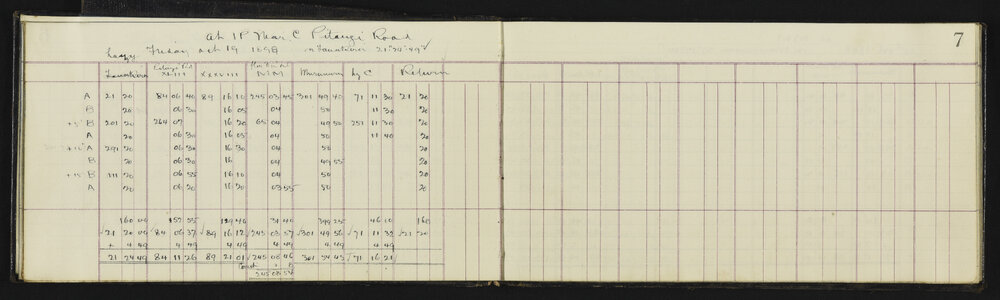 7
At IP Near C Pitangi Road
Hazy Friday Feb 19 1898 Tauateura 21° 24' 49"
XLIII XXXVIII MM Muramura by C Return
A 21 20 84 06 40 89 16 10 245 03 45 301 49 40 71 11 30 21 20
B 20 06 30 16 05 04 50 11 30 20
+5° B 201 20 264 07 16 20 65 04 49 50 251 11 30 20
A 20 06 30 16 05 04 50 11 40 20
A 291 20 06 30 16 30 04 50 20
B 20 06 30 16 04 49 55 20
B 111 20 06 55 16 10 04 50 20
A 20 06 20 16 20 03 55 50 20
160 00 152 55 129 40 31 40 399 25 46 10 160
21 20 00 84 06 37 89 16 12 245 03 57 301 49 56 71 11 32 21 20
+ 4 49 4 49 4 49 4 49 4 49 4 49
21 24 49 84 11 26 89 21 01 245 08 46 301 54 45 71 16 21
245 08 54